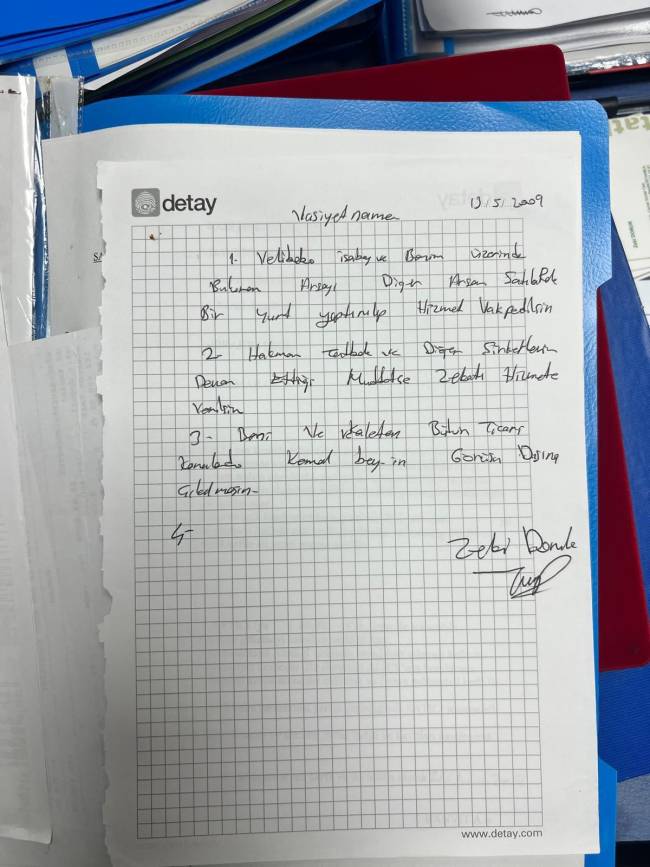 detay
Vasiyetname
19/5/2009
1. Velibaba isabey ve Benim üzerinde
Bulunan Arsayı Diğer Arsan
Bir yurt yaptırılıp Hizmet Vakpedilsin
2 Hakman ve Diğer Şirketlerin
Devam Ettiği Muddetçe Zekatı Hizmete
Verilsin
3- Dini Ve vekaleten Bütün Ticari
Konularda Kemal bey-in Görüşü Dışına
Çıkılmasın-
4-
Zeki
www.detay.com